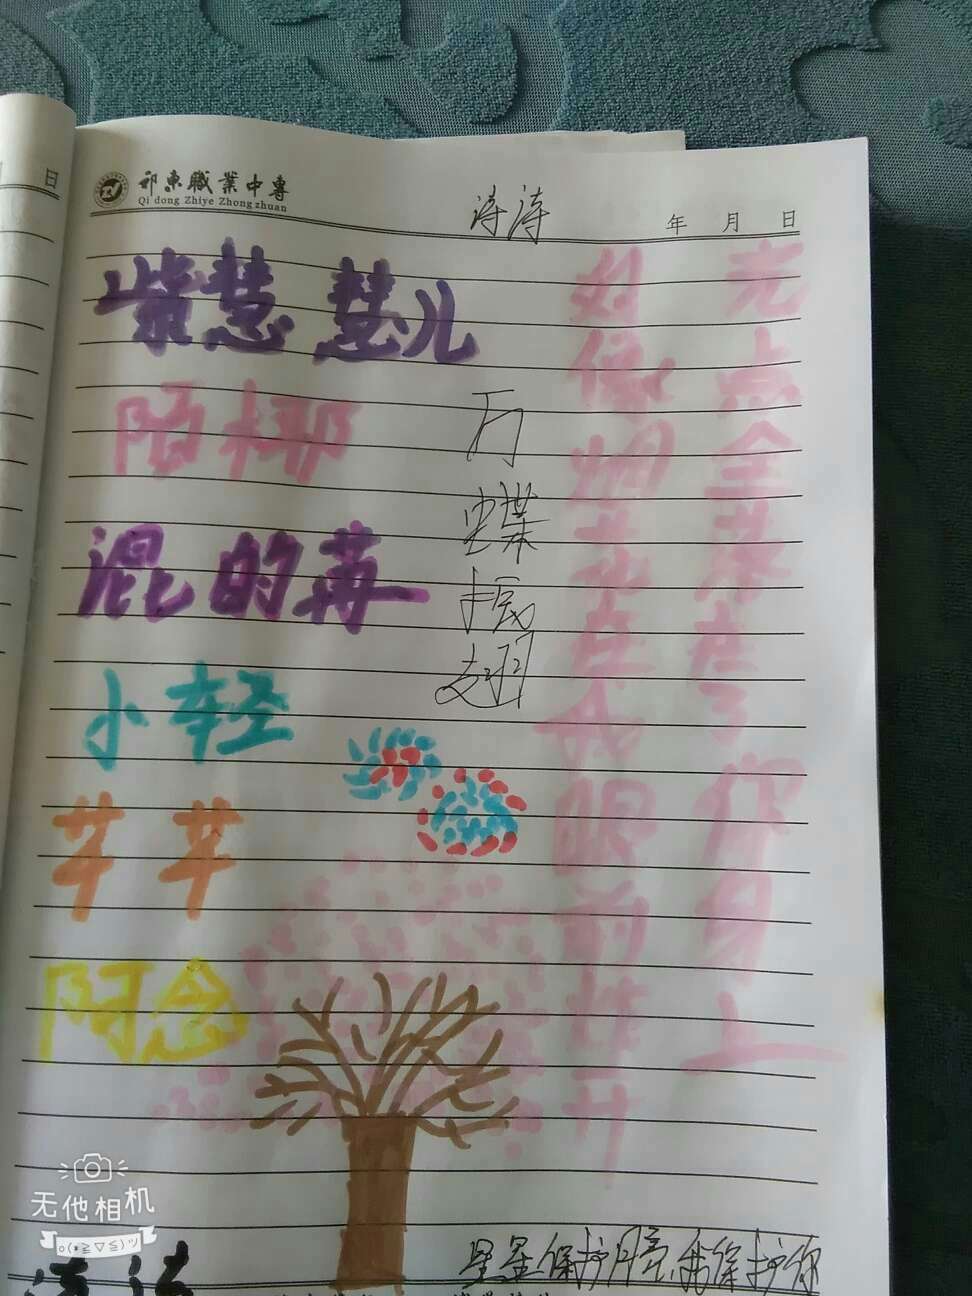 祁東職業中專
Qi dong Zhiye Zhong zhuan
涛涛
年 月 日
日
紫慧 慧儿
陌梆
混的苒
小轻
芊芊
阿念
万蝶振翅
光点全落在了你身上
好像烟花在我眼前炸开
星星保护月亮,我保护你
无他相机